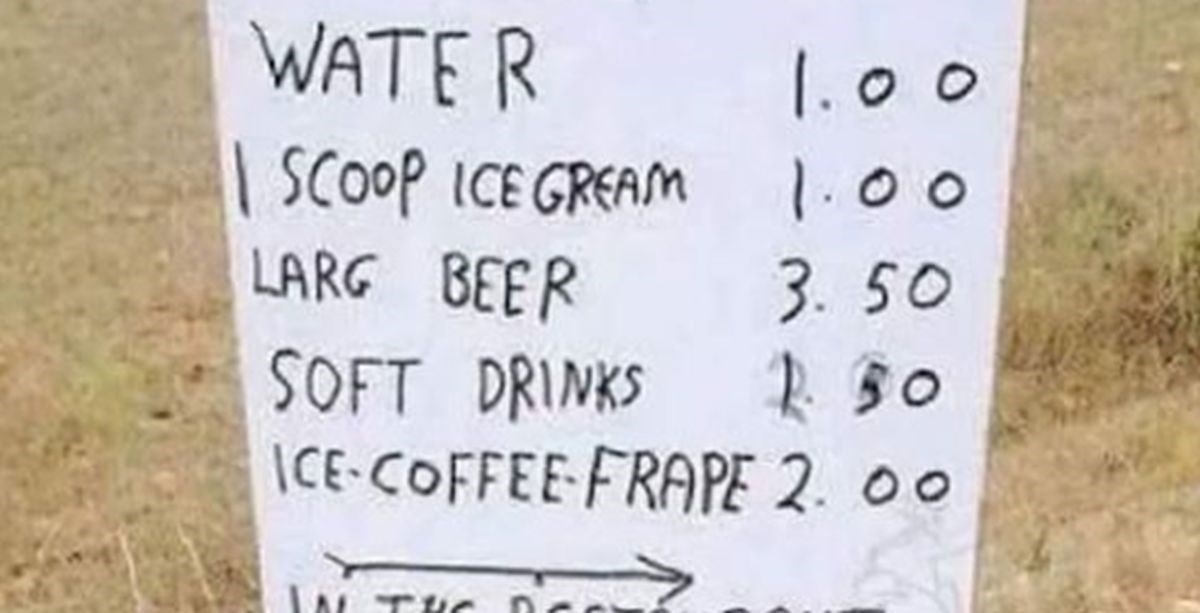 WATER 1.00
1 SCOOP ICE GREAM 1.00
LARG BEER 3.50
SOFT DRINKS 1.50
ICE-COFFEE-FRAPE 2.00
IN THE RESTAURANT